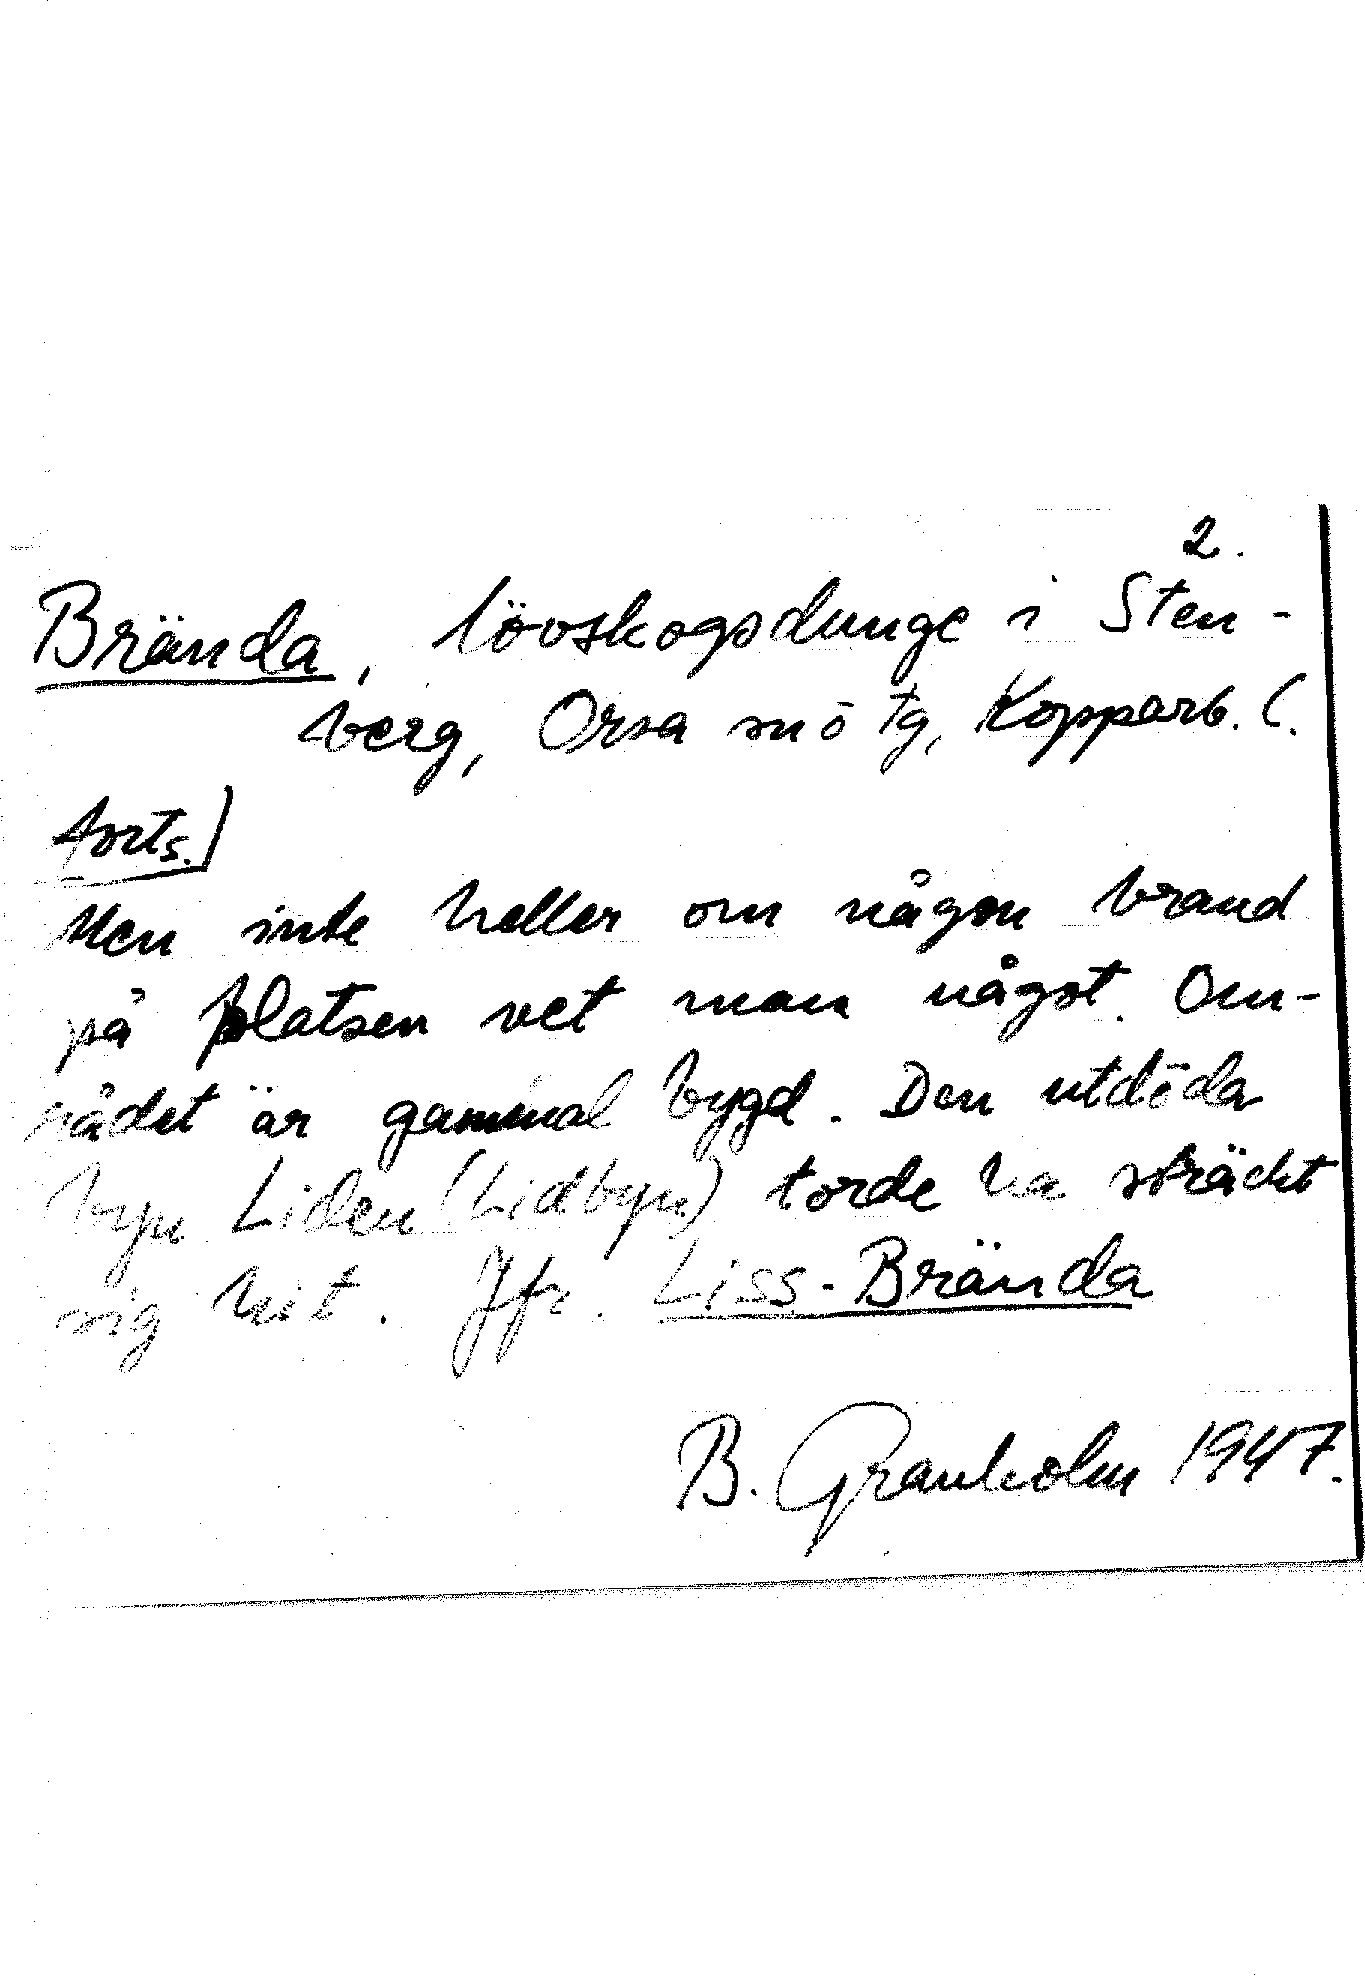 2.
Brända, lövskogsdunge i Sten-
berg, Orsa sn ö tg, Kopparb. l.
forts.)
Men inte heller om någon brand
på platsen vet man något. Om-
rådet är gammal bygd. Den utdöda
byn Liden (Lidbyn) torde ha sträckt
sig hit. Jfr. Liss-Brända
B. Granholm 1947.